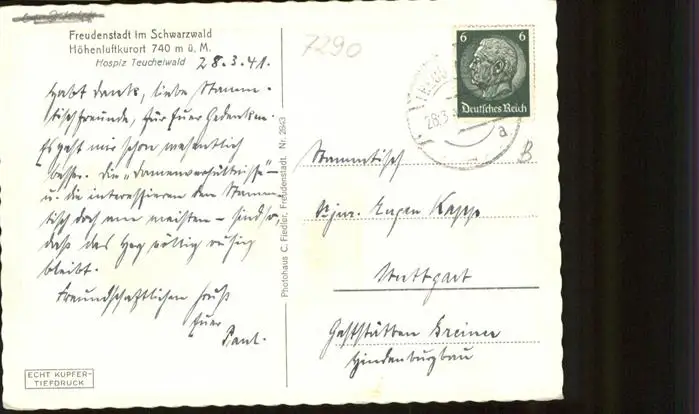 Freudenstadt im Schwarzwald
Höhenluftkurort 740 m ü. M.
Hospiz Teuchelwald
28.3.41.
Habt Dank, liebe Stamm-
tischfreunde, für Euer Gedenken.
Es geht mir schon wesentlich
besser. Die „Damenverhältnisse" -
u. die interessieren den Stamm-
tisch doch am meisten - sind so,
daß das Herz völlig ruhig
bleibt.
Freundschaftlichen Gruß
Euer
Paul.
ECHT KUPFER-
TIEFDRUCK
Photohaus C. Fiedler, Freudenstadt. Nr. 2843
7290
6 6
Deutsches Reich
28.3.
a
B
Stammtisch
Eugen Kapp
Stuttgart
Gaststätten Greiner
Hindenburgbau